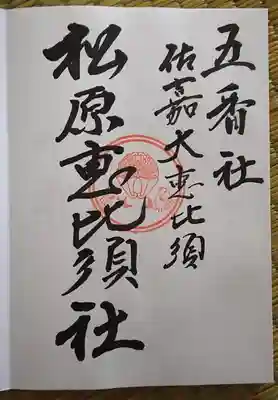 五香社
佑嘉大恵比須
松原恵比須社